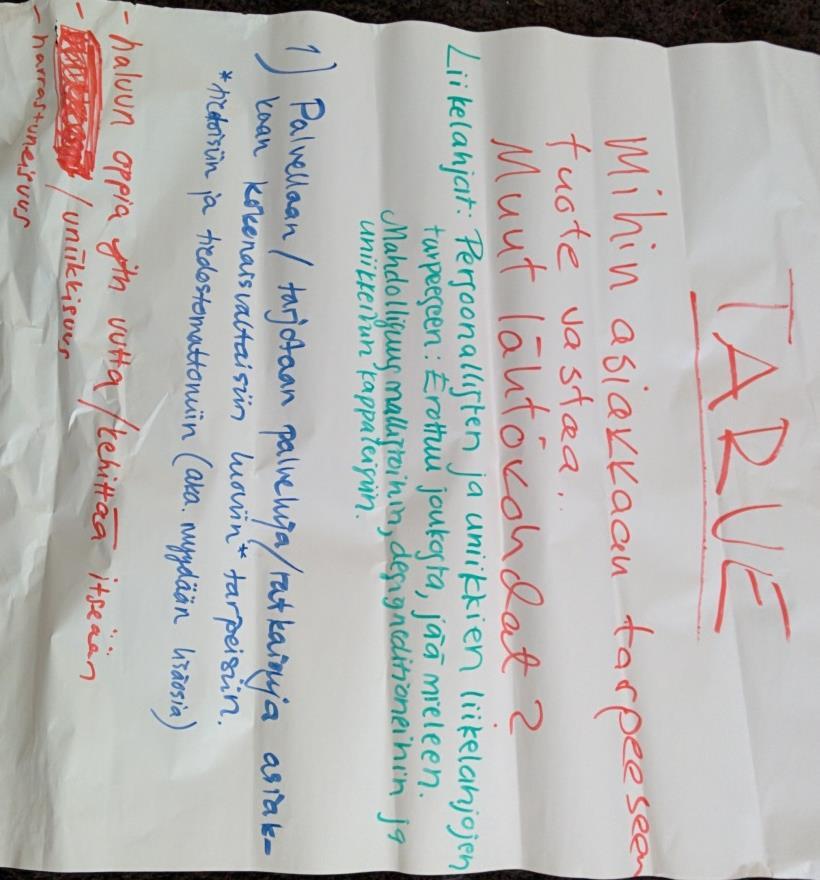 TARVE
Mihin asiakkaan tarpeeseen
tuote vastaa..
Muut lähtökohdat?
Liikelahjat: Persoonallisten ja uniikkien liikelahjojen
tarpeeseen: Erottuu joukosta, jää mieleen.
Mahdollisuus mallistoihin, designeditioneihin ja
uniikkeihin kappaleisiin.
1) Palvellaan / tarjotaan palveluja/ratkaisuja asiak-
kaan kokonaisvaltaisiin luoviin* tarpeisiin.
*tiedoisiin ja tiedostomattomiin (aka. myydään lisäosia)
- haluun oppia uutta/kehittää itseään
- /uniikkisuus
- harrastuneisuus